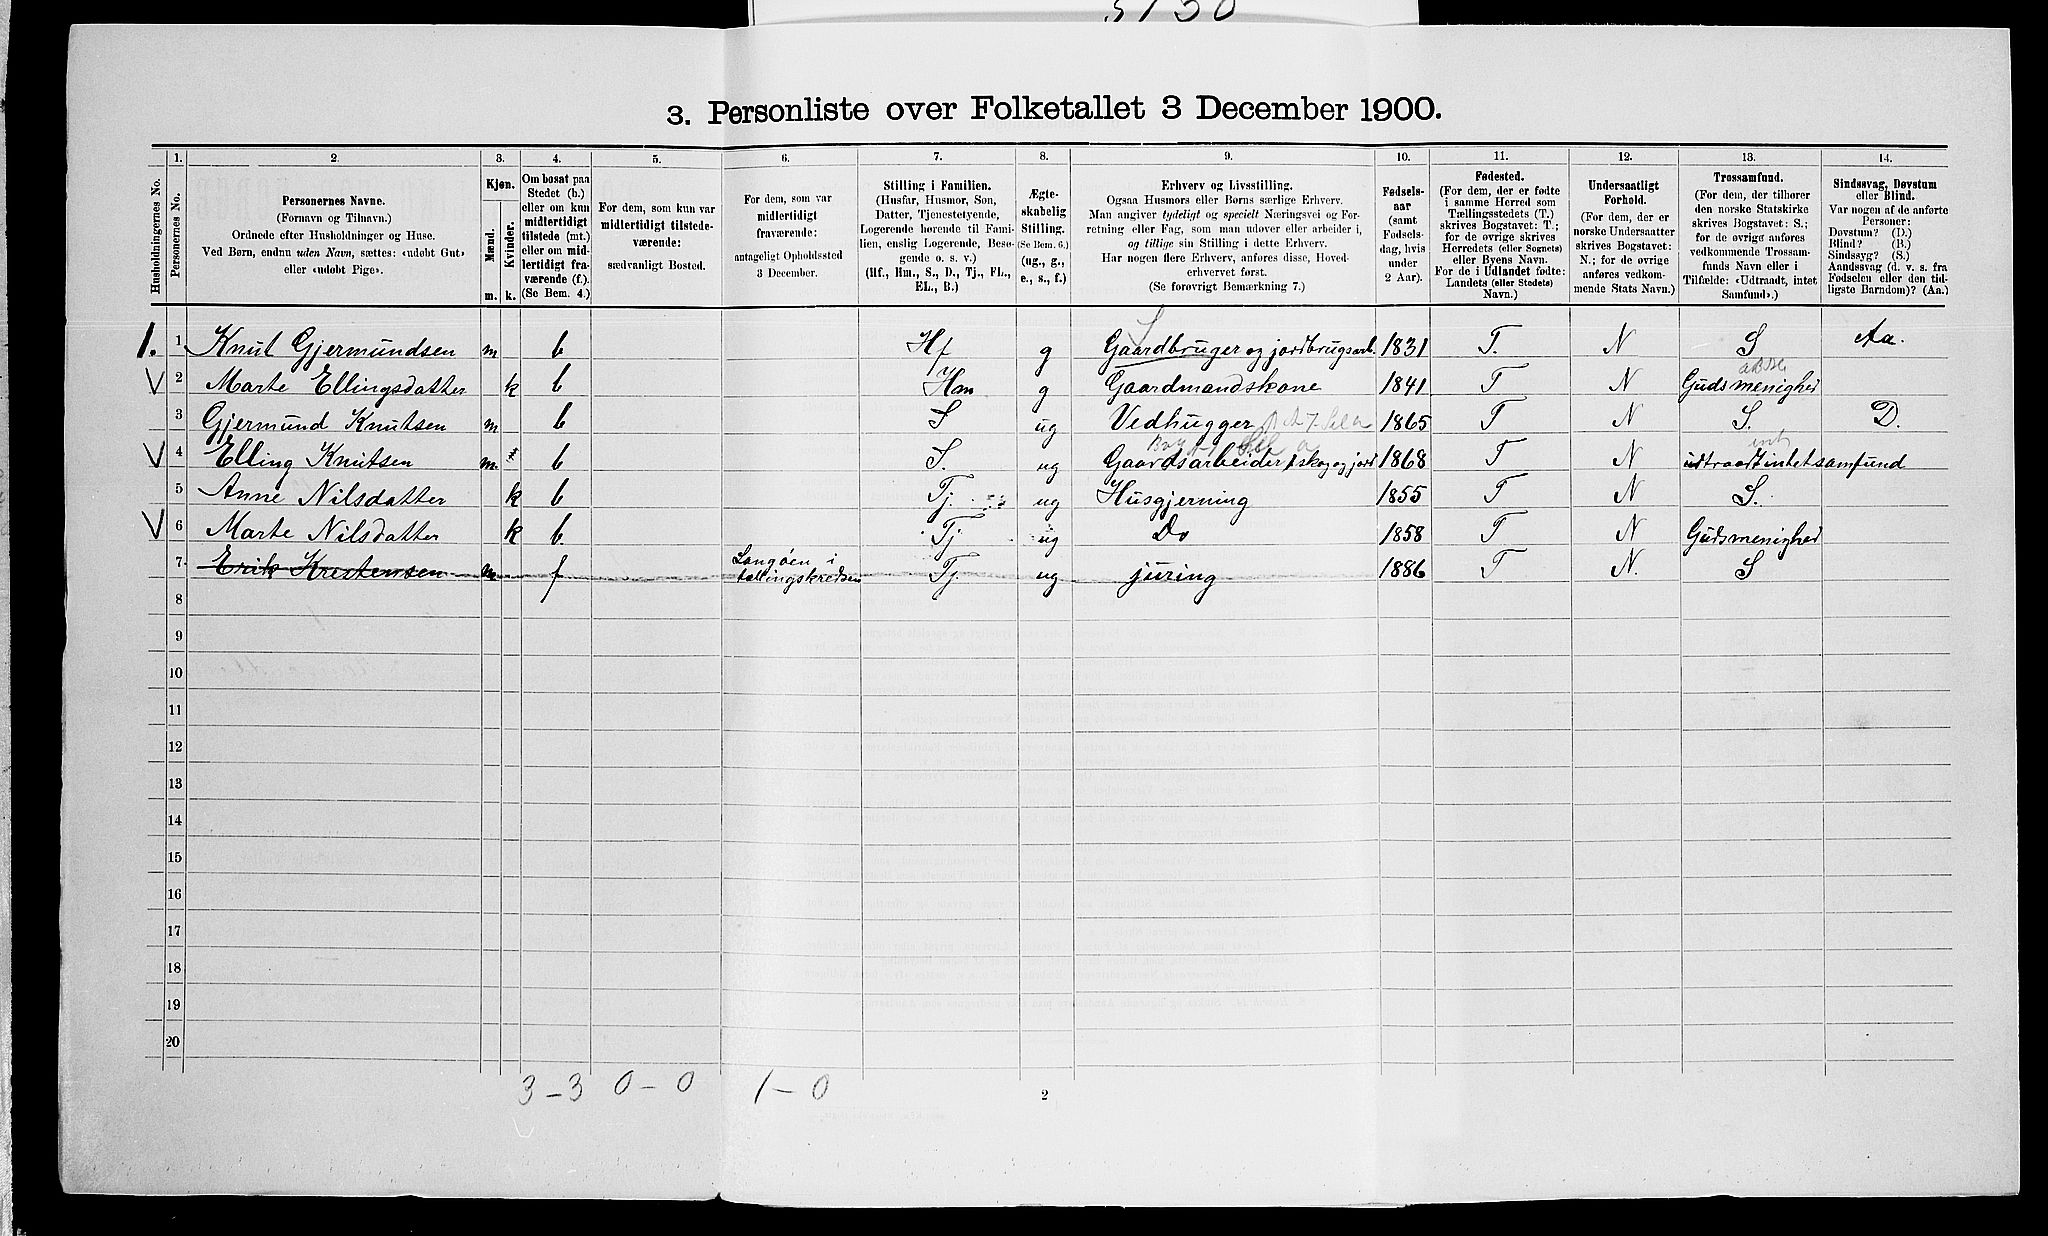 3. Personliste over Folketallet 3 December 1900.
1. 2. 3. 4. 5. 6. 7. 8. 9. 10. 11. 12. 13. 14.
Husholdningernes No.
Personernes No.
Personernes Navne.
(Fornavn og Tilnavn.)
Ordnede efter Husholdninger og Huse.
Ved Børn, endnu uden Navn, sættes: «udøbt Gut»
eller «udøbt Pige».
Kjøn.
Mænd. Kvinder.
m. k.
Om bosat paa
Stedet (b.)
eller om kun
midlertidigt
tilstede (mt.)
eller om mid-
lertidigt fra-
værende (f.).
(Se Bem. 4.)
For dem, som kun var
midlertidigt tilstede-
værende:
sædvanligt Bosted.
For dem, som var
midlertidigt
fraværende:
antageligt Opholdssted
3 December.
Stilling i Familien.
(Husfar, Husmor, Søn,
Datter, Tjenestetyende,
Logerende hørende til Fami-
lien, enslig Logerende, Besø-
gende o. s. v.)
(Hf., Hm., S., D., Tj., FL.,
EL., B.)
Ægte-
skabelig
Stilling.
(Se Bem. 6.)
(ug., g.,
e., s., f.)
Erhverv og Livsstilling.
Ogsaa Husmors eller Børns særlige Erhverv.
Man angiver tydeligt og specielt Næringsvei og For-
retning eller Fag, som man udøver eller arbeider i,
og tillige sin Stilling i dette Erhverv.
Har nogen flere Erhverv, anføres disse, Hoved-
erhvervet først.
(Se forøvrigt Bemærkning 7.)
Fødsels-
aar
(samt
Fødsels-
dag, hvis
under
2 Aar).
Fødested.
(For dem, der er fødte
i samme Herred som
Tællingsstedets (T.)
skrives Bogstavet: T.;
for de øvrige skrives
Herredets (eller Sognets)
eller Byens Navn.
For de i Udlandet fødte:
Landets (eller Stedets)
Navn.)
Undersaatligt
Forhold.
(For dem, der er
norske Undersaatter
skrives Bogstavet:
N.; for de øvrige
anføres vedkom-
mende Stats Navn.)
Trossamfund.
(For dem, der tilhører
den norske Statskirke
skrives Bogstavet: S.;
for de øvrige anføres
vedkommende Trossam-
funds Navn eller i
Tilfælde: «Udtraadt, intet
Samfund».)
Sindssvag, Døvstum
eller Blind.
Var nogen af de anførte
Personer:
Døvstum? (D.)
Blind? (B.)
Sindssyg? (S.)
Aandssvag (d. v. s. fra
Fødselen eller den tid-
ligste Barndom)? (Aa.)
1. 1 Knut Gjermundsen m b Hf g Gaardbruger og jordbrugsarb. 1831 T. N S Aa.
V 2 Marte Ellingsdatter k b Hm g Gaardmandskone 1841 T N Gudsmenighed
3 Gjermund Knutsen m b S ug Vedhugger 1865 T N S. D.
V 4 Elling Knutsen m. b S. ug Gaardsarbeider i skog og jord 1868 T N udtraadt intet samfund
5 Anne Nilsdatter k b Tj. ug Husgjerning 1855 T N S.
V 6 Marte Nilsdatter k b. Tj ug Do 1858 T N Gudsmenighed
7 Erik Kristensen m f Langøen i tællingskredsen Tj. ug juring 1886 T N. S
8
9
10
11
12
13
14
15
16
17
18
19
20
3–3 0–0 1–0
2